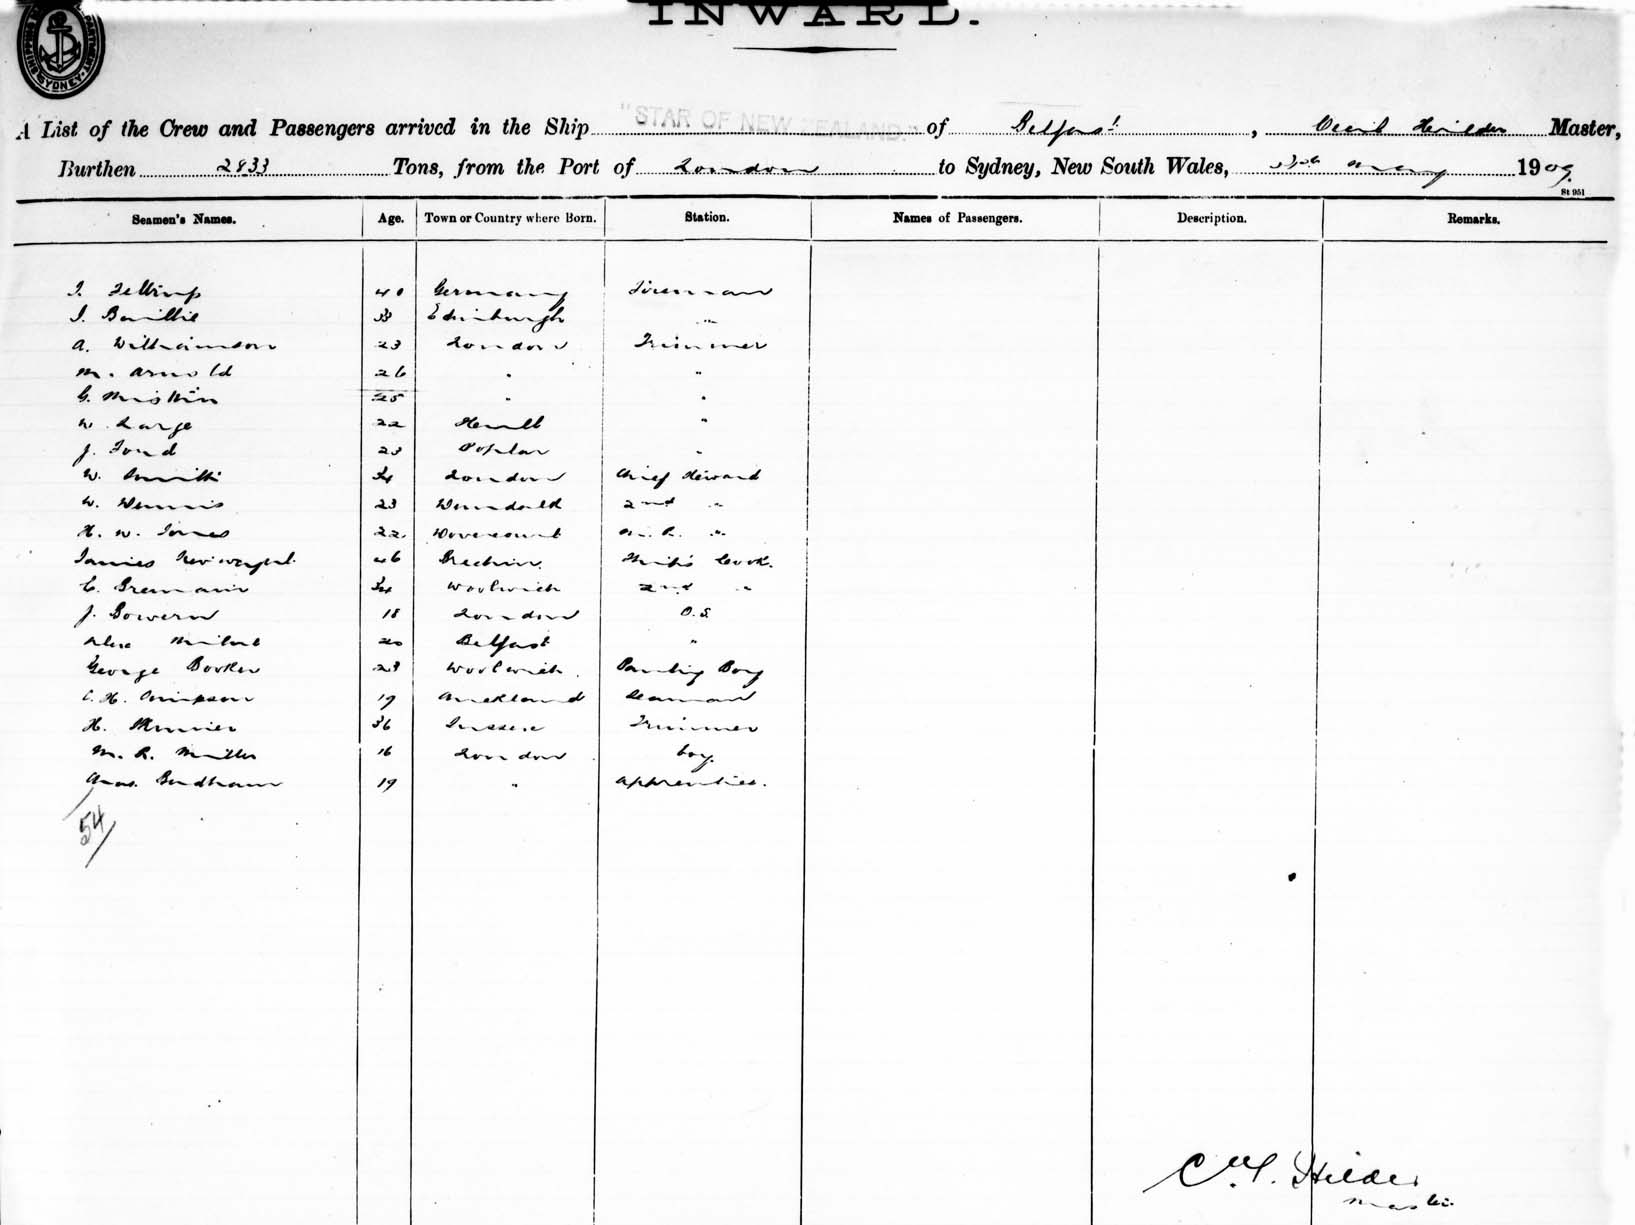 INWARD.
SYDNEY
A List of the Crew and Passengers arrived in the Ship "STAR OF NEW ZEALAND." of Belfast, Hilder Master,
Burthen 2833 Tons, from the Port of London to Sydney, New South Wales, May 1909.
St 951
Seamen's Names. Age. Town or Country where Born. Station. Names of Passengers. Description. Remarks.
40 Germany Fireman
J. Baillie 33 Edinburgh "
A. Williamson 23 London Trimmer
M. Arnold 26 " "
G. Miskin 25 " "
W. Large 22 "
J. Ford 23 Poplar "
W. Smith 34 London Chief Steward
W. Dennis 23 2nd "
H. W. Jones 22 "
James 46 Brechin Cook.
C. 34 Woolwich 2nd "
J. Gowern 18 London O.S.
Alex 20 Belfast "
George Booker 23 Woolwich Pantry Boy
C. H. Simpson 19 Auckland Seaman
H. 36 Sussex Trimmer
M. R. Miller 16 London boy.
Chas. 19 " Apprentice.
54
Hilder
Master